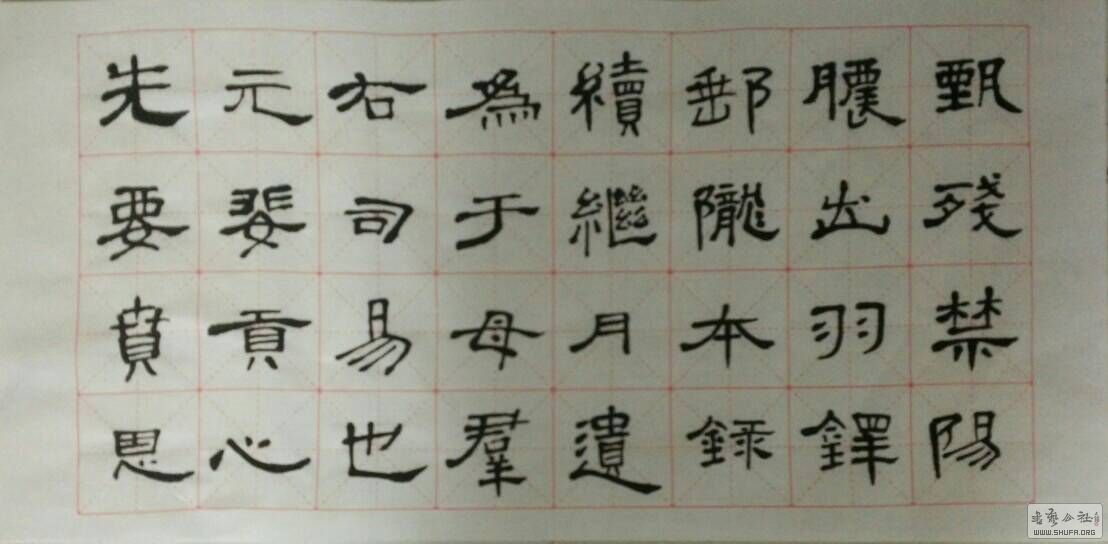 甄殘禁陽
出羽鐸
郵隴本錄
續繼月遺
為于母羣
右司易也
元婓貢心
先要賁恩
书艺公社
WWW.SHUFA.ORG